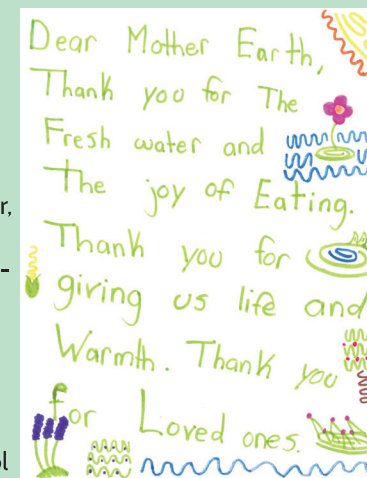 Dear Mother Earth,
Thank you for The
Fresh water and
The joy of Eating.
Thank you for
giving us life and
Warmth. Thank you
for Loved ones.